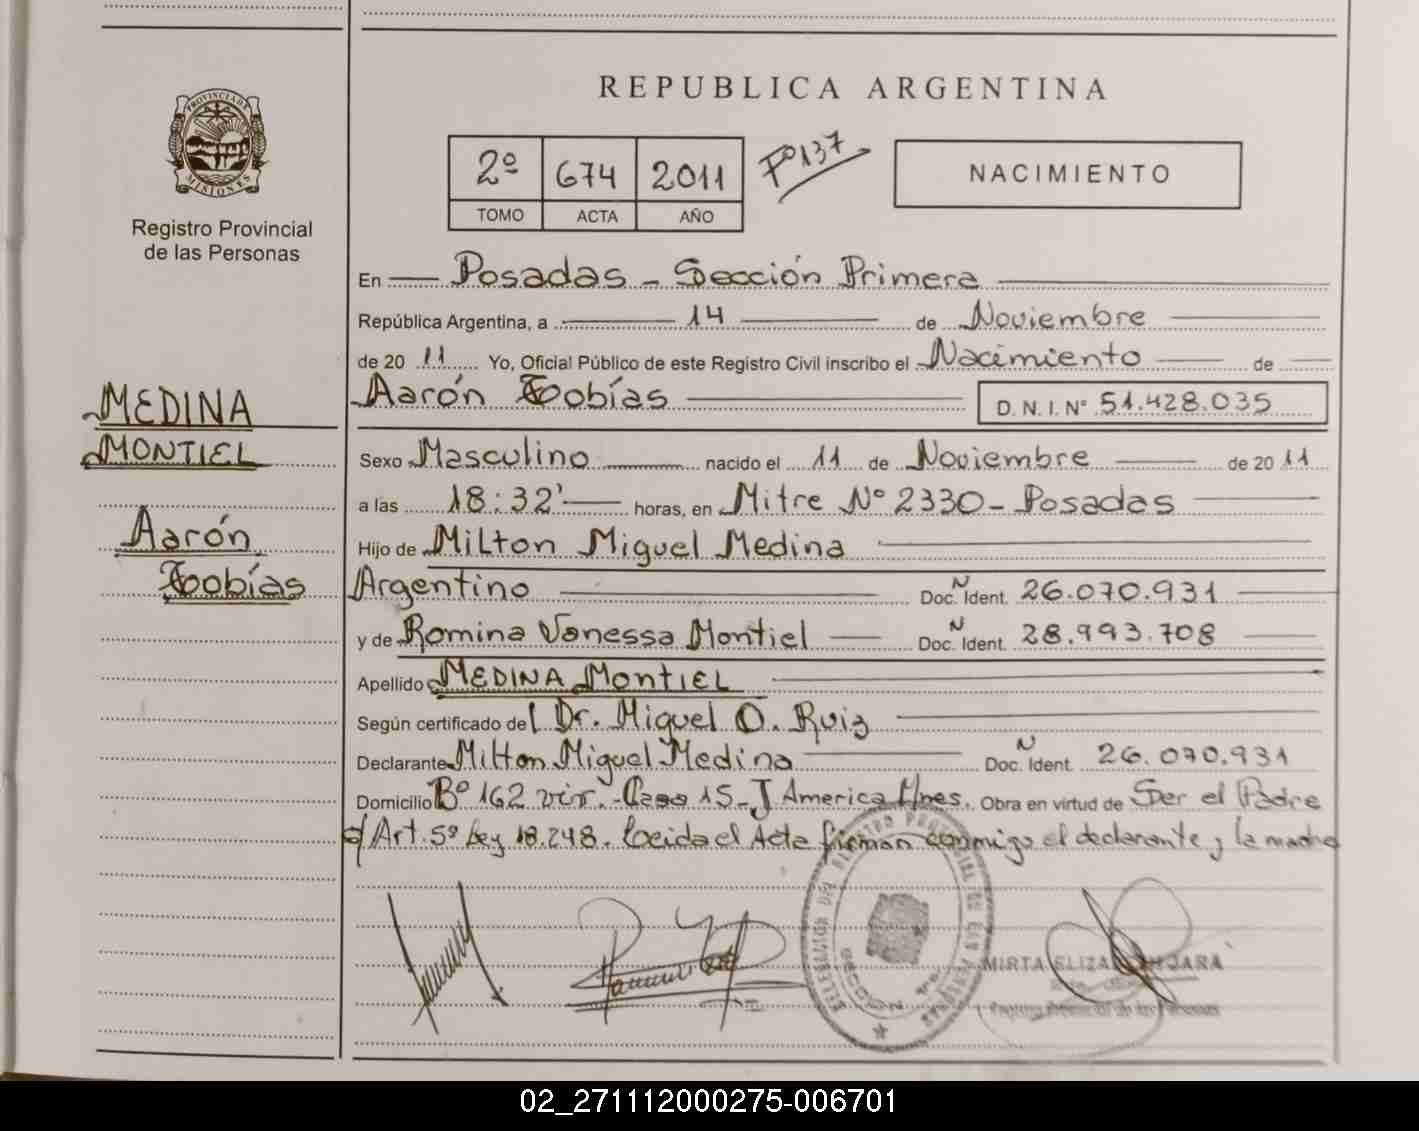 PROVINCIA DE
MISIONES
Registro Provincial
de las Personas
MEDINA
MONTIEL
Aarón
Tobías
REPUBLICA ARGENTINA
2º 674 2011 Fº137
TOMO ACTA AÑO
NACIMIENTO
En Posadas - Sección Primera
República Argentina, a 14 de Noviembre
de 20 11 Yo, Oficial Público de este Registro Civil inscribo el Nacimiento de
Aarón Tobías D. N. I. Nº 51.428.035
Sexo Masculino nacido el 11 de Noviembre de 20 11
a las 18:32' horas, en Mitre Nº 2330 - Posadas
Hijo de Milton Miguel Medina
Argentino Doc. Ident. 26.070.931
y de Romina Vanessa Montiel Doc. Ident. 28.993.708
Apellido MEDINA MONTIEL
Según certificado del Dr. Miguel O. Ruiz
Declarante Milton Miguel Medina Doc. Ident. 26.070.931
Domicilio Bº 162 viv. - Casa 15 - J America Mnes. Obra en virtud de Ser el Padre
Art. 5º Ley 18.248. Leida el Acta firman conmigo el declarante y la madre
SECCION 1ª
MIRTA
02_271112000275-006701